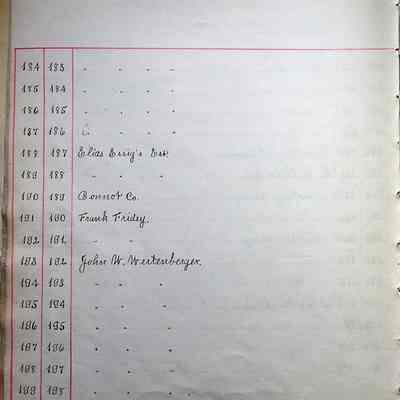 184 183 " " " "
185 184 " " " "
186 185 " " " "
187 186 " " "
188 187 Elias Essig's Est.
189 188 " " "
190 189 Bonnot Co.
191 190 Frank Fridey.
192 191 " "
193 192 John W. Wertenberger.
194 193 " " "
195 194 " " "
196 195 " " "
197 196 " " "
198 197 " " "
199 198 " " "